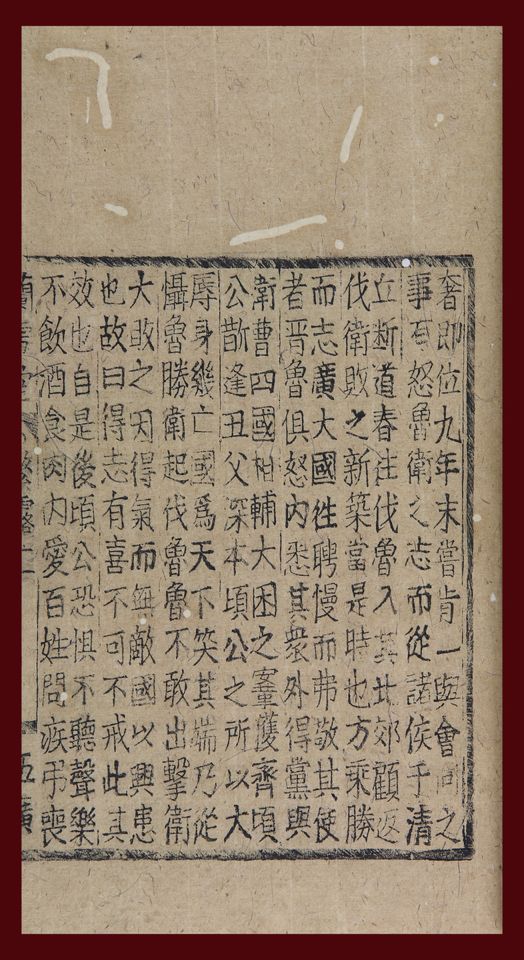 奢即位九年末嘗肯一與會同之
事有怒魯衛之志而從諸侯于清
丘斷道春往伐魯入其北郊顧返
伐衛敗之新築當是時也方乗勝
而志廣大國徃聘慢而弗敬其使
者晋魯俱怒内悉其衆外得黨與
衛曹四國相輔大困之鞌獲齊頃
公斮逢丑父深本頃公之所以大
辱身幾亡國爲天下笑其端乃從
懾魯勝衛起伐魯魯不敢出擊衛
大敗之因得氣而無敵國以興患
也故曰得志有喜不可不戒此其
效也自是後頃公恐惧不聽聲樂
不飲酒食肉内愛百姓問疾弔喪